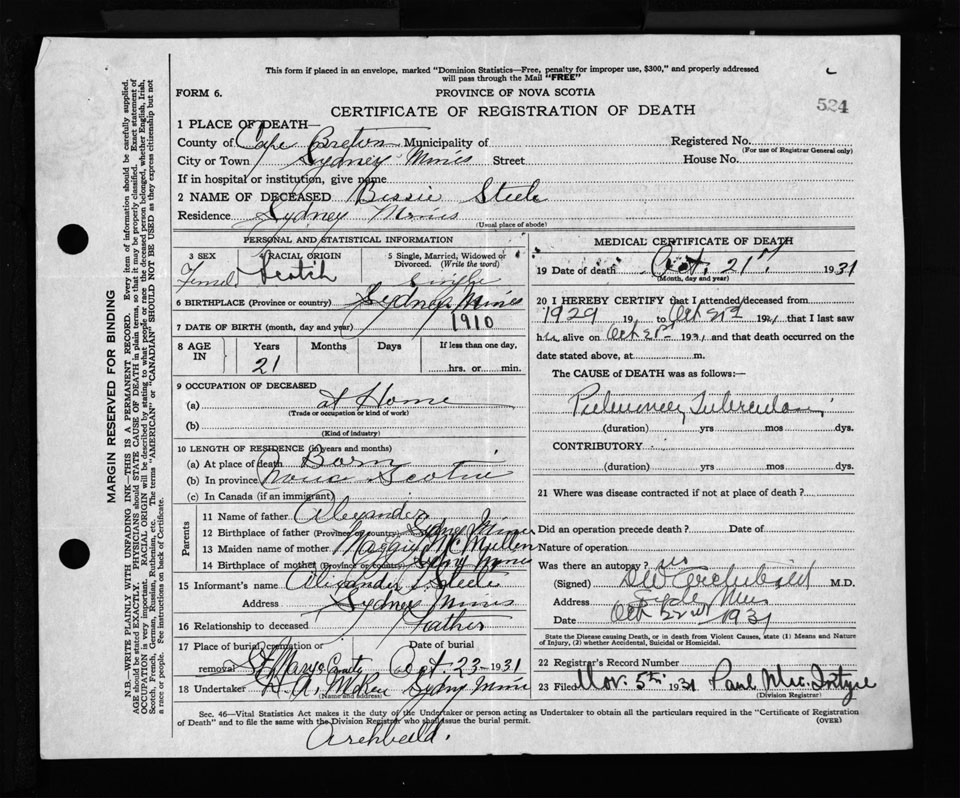 This form if placed in an envelope, marked "Dominion Statistics—Free, penalty for improper use, $300," and properly addressed
will pass through the Mail "FREE"
FORM 6.
PROVINCE OF NOVA SCOTIA
524
CERTIFICATE OF REGISTRATION OF DEATH
1 PLACE OF DEATH—
County of Cape Breton Municipality of
Registered No.
(For use of Registrar General only)
City or Town Sydney Mines Street
House No.
If in hospital or institution, give name
2 NAME OF DECEASED Bessie Steele
Residence Sydney Mines
(Usual place of abode)
PERSONAL AND STATISTICAL INFORMATION
3 SEX
4 RACIAL ORIGIN
5 Single, Married, Widowed or
Divorced. (Write the word)
Female Scotch Single
6 BIRTHPLACE (Province or country) Sydney Mines
7 DATE OF BIRTH (month, day and year) 1910
8 AGE
IN
Years Months Days If less than one day,
21
hrs. or min.
9 OCCUPATION OF DECEASED
(a) at Home
(Trade or occupation or kind of work)
(b)
(Kind of industry)
10 LENGTH OF RESIDENCE (in years and months)
(a) At place of death Born
(b) In province Nova Scotia
(c) In Canada (if an immigrant)
Parents
11 Name of father Alexander
12 Birthplace of father (Province or country) Sydney Mines
13 Maiden name of mother Maggie McMullen
14 Birthplace of mother (Province or country) Sydney Mines
15 Informant's name Alexander Steele
Address Sydney Mines
16 Relationship to deceased Father
17 Place of burial, cremation or
Date of burial
removal St Mary's Oct. 23 - 1931
18 Undertaker Sydney Mines
(Name and address)
MEDICAL CERTIFICATE OF DEATH
19 Date of death Oct. 21st 1931
(Month, day and year)
20 I HEREBY CERTIFY that I attended deceased from
1929 19 to Oct 21st 1931 that I last saw
her alive on Oct 21st 1931 and that death occurred on the
date stated above, at m.
The CAUSE of DEATH was as follows:—
Pulmonary Tuberculosis
(duration) yrs mos dys.
CONTRIBUTORY
(duration) yrs mos dys.
21 Where was disease contracted if not at place of death?
Did an operation precede death? Date of
Nature of operation
Was there an autopsy? no
(Signed) Archbald M.D.
Address
Date Oct 22nd 1931
State the Disease causing Death, or in death from Violent Causes, state (1) Means and Nature
of Injury, (2) whether Accidental, Suicidal or Homicidal.
22 Registrar's Record Number
23 Filed Nov. 5th 1931 Paul MacIntyre
(Division Registrar)
Sec. 46—Vital Statistics Act makes it the duty of the Undertaker or person acting as Undertaker to obtain all the particulars required in the "Certificate of Registration
of Death" and to file the same with the Division Registrar who shall issue the burial permit.
(OVER)
Archbald.
MARGIN RESERVED FOR BINDING
N.B.—WRITE PLAINLY WITH UNFADING INK—THIS IS A PERMANENT RECORD. Every item of information should be carefully supplied.
AGE should be stated EXACTLY. PHYSICIANS should STATE CAUSE OF DEATH in plain terms, so that it may be properly classified. Exact statement of
OCCUPATION is very important. RACIAL ORIGIN will be described by stating to what people or race the deceased person belonged, whether English, Irish,
Scotch, French, German, Russian, Ruthenian, etc. The terms "AMERICAN" or "CANADIAN" SHOULD NOT BE USED as they express citizenship but not
a race or people. See instructions on back of Certificate.